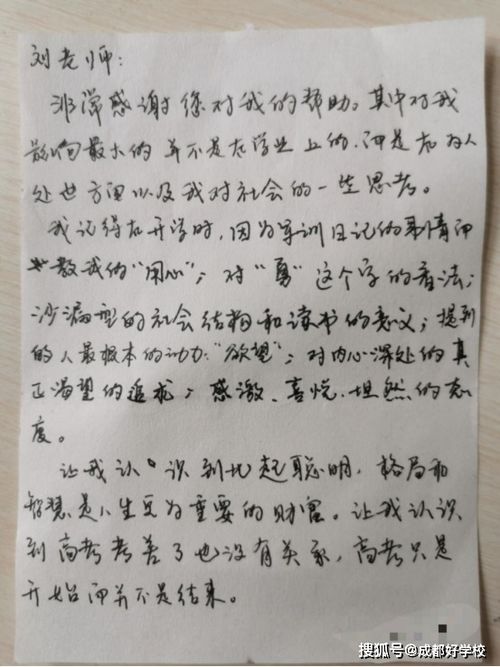 刘老师:
非常感谢您对我的帮助。其中对我
影响最大的并不是在学业上的,而是在为人
处世方面以及我对社会的一些思考。
我记得在开学时,因为军训日记的事情而
教我的“用心”;对“勇”这个字的看法;
沙漏型的社会结构和读书的意义;提到
的人最根本的动力:“欲望”;对内心深处的真
正渴望的追求;感激、喜悦、坦然的态
度。
让我认识到比起聪明,格局和
智慧是人生更为重要的财富。让我认识
到高考考差了也没有关系,高考只是
开始而并不是结束。
搜狐号@成都好学校